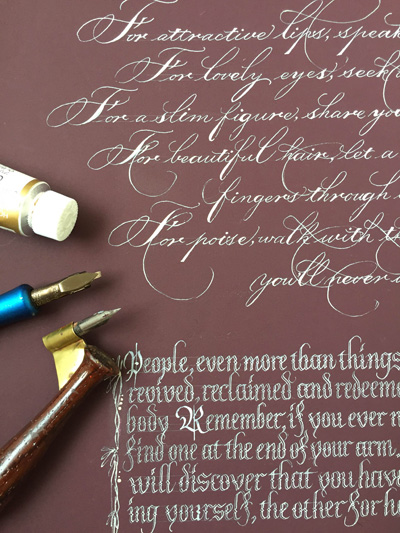 For attractive lips, speak
For lovely eyes, seek
For a slim figure, share you
For beautiful hair, let a
fingers through
For poise, walk with
you'll never
People, even more than things
revived, reclaimed and redeeme
body Remember, if you ever n
find one at the end of your arm.
will discover that you have
ing yourself, the other for he